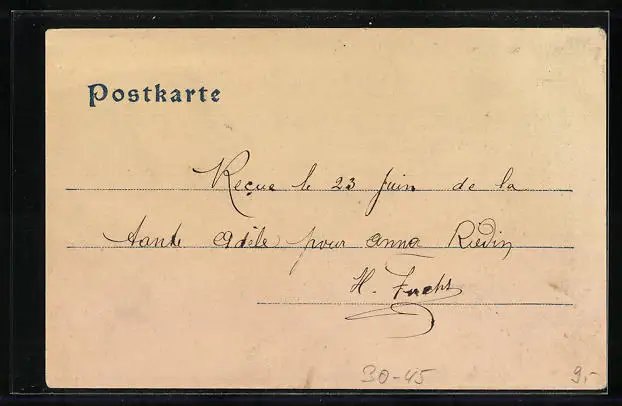 Postkarte
Reçue le 23 Juin de la
tante Adèle pour Anna Riedin
H. Fuchs
30-45 9,-